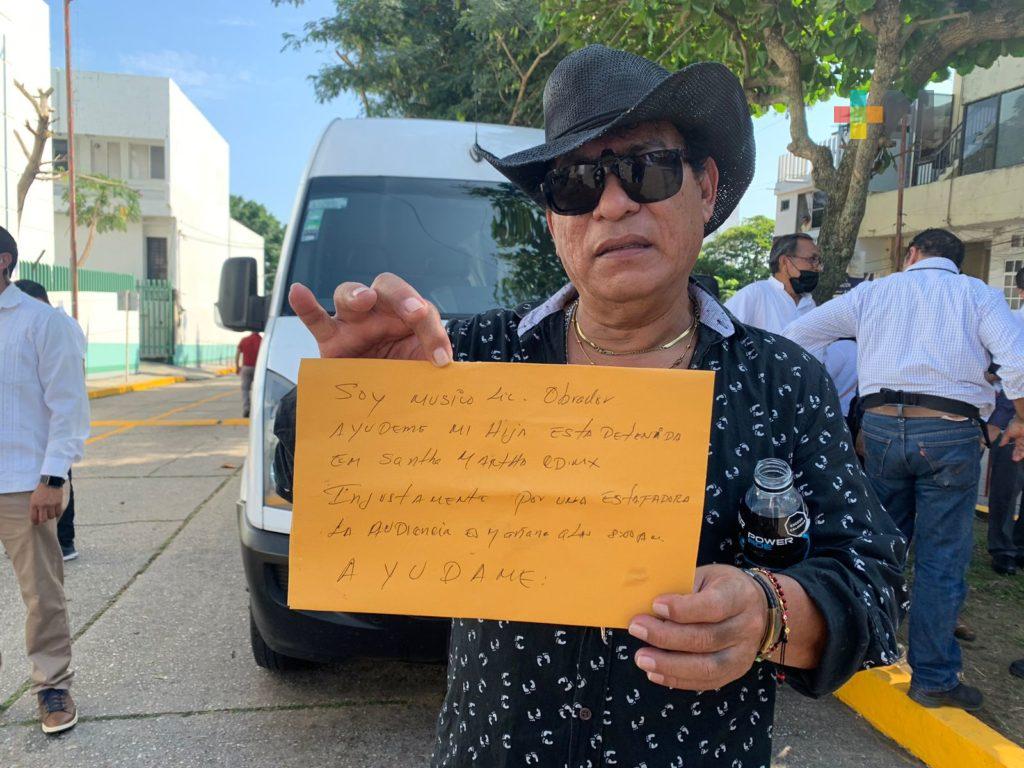 Soy musico Lic. Obrador
AYUDEME MI Hija ESTA DETENIDA
EM Santha MArtha CD.MX
Injustamente por una ESTAFADORA
LA AUDIENCIA ES MAÑANA A LAS 8:00 Am.
AYUDAME:
POWER